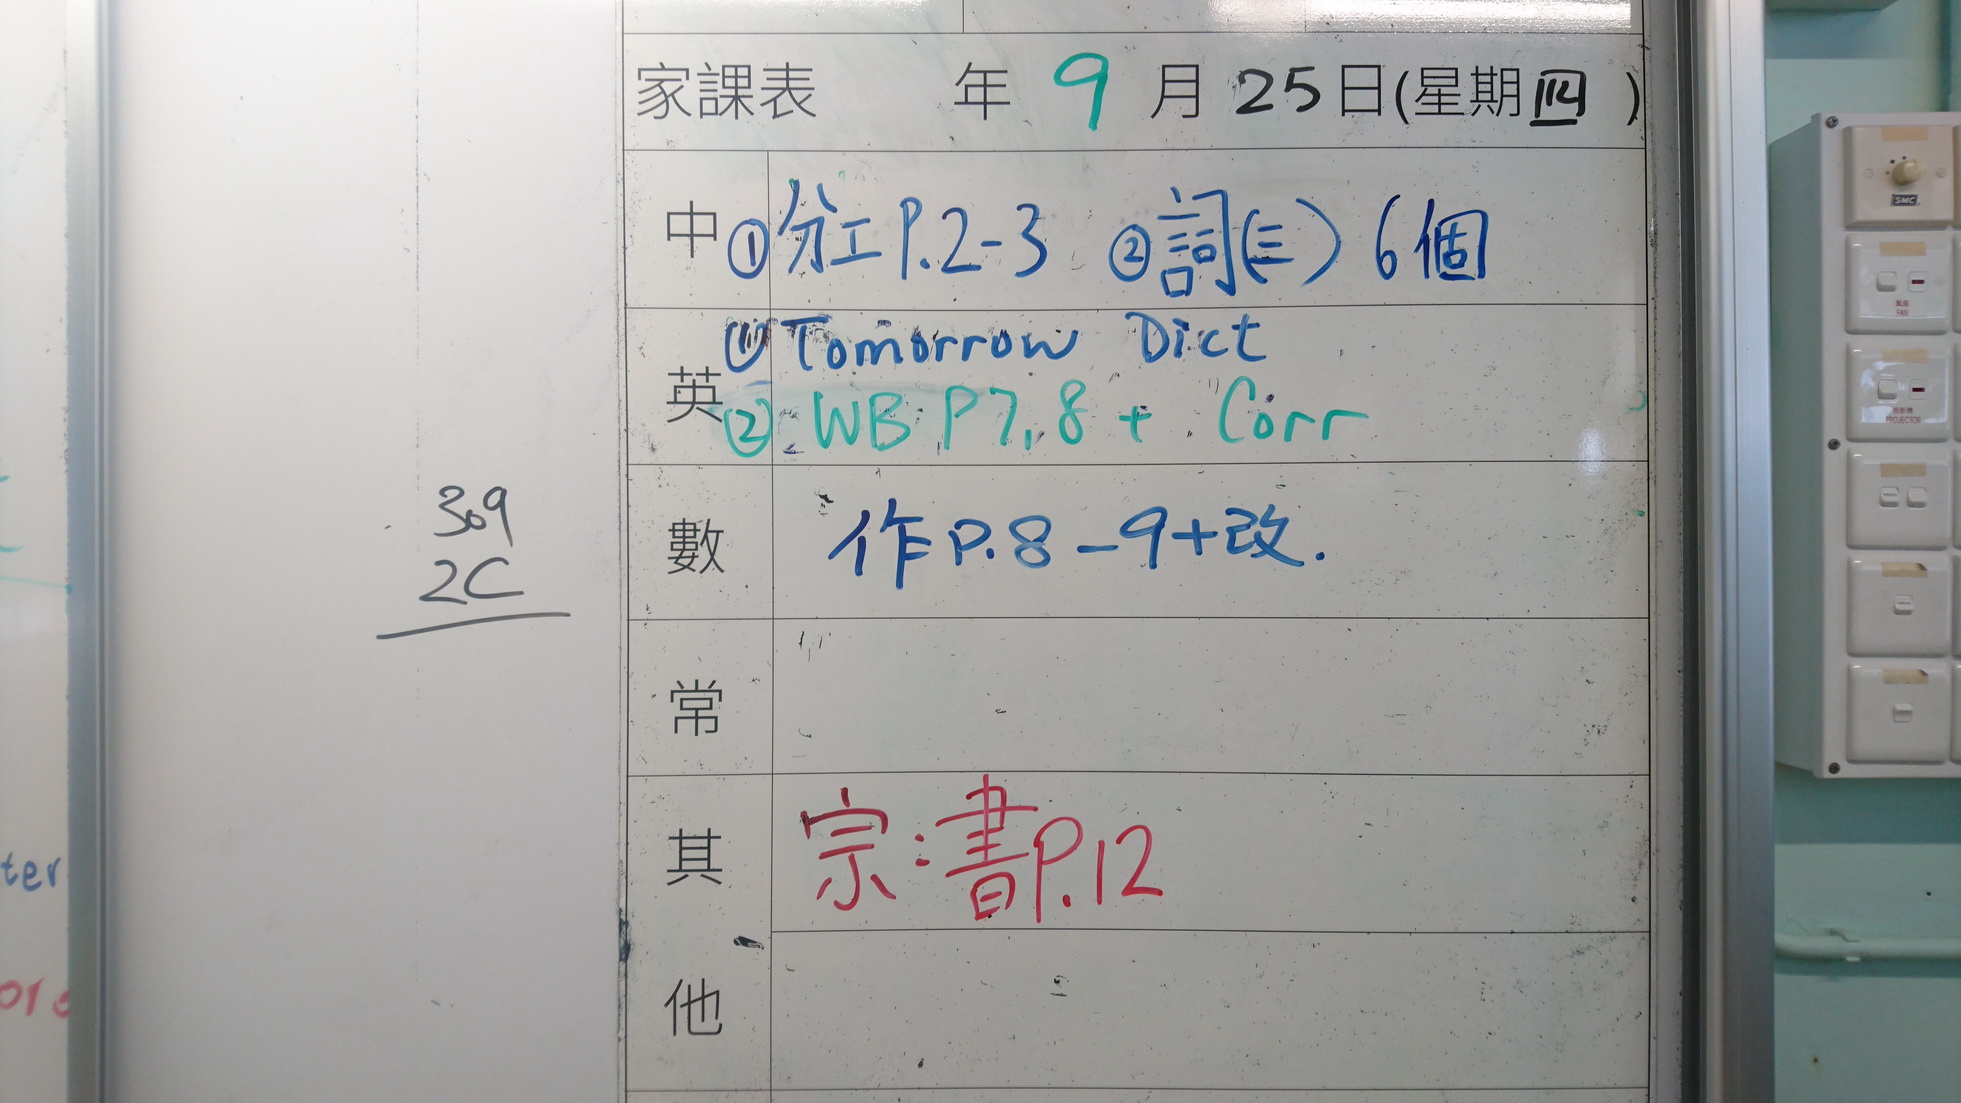 家課表 年 9 月 25 日(星期四)
中 ①分工P.2-3 ②詞(三) 6個
英 ① Tomorrow Dict
② WB P7,8 + Corr
數 作P.8-9+改.
常
其他 宗:書P.12
309
2C
ter
SMC
FAN
PROJECTOR